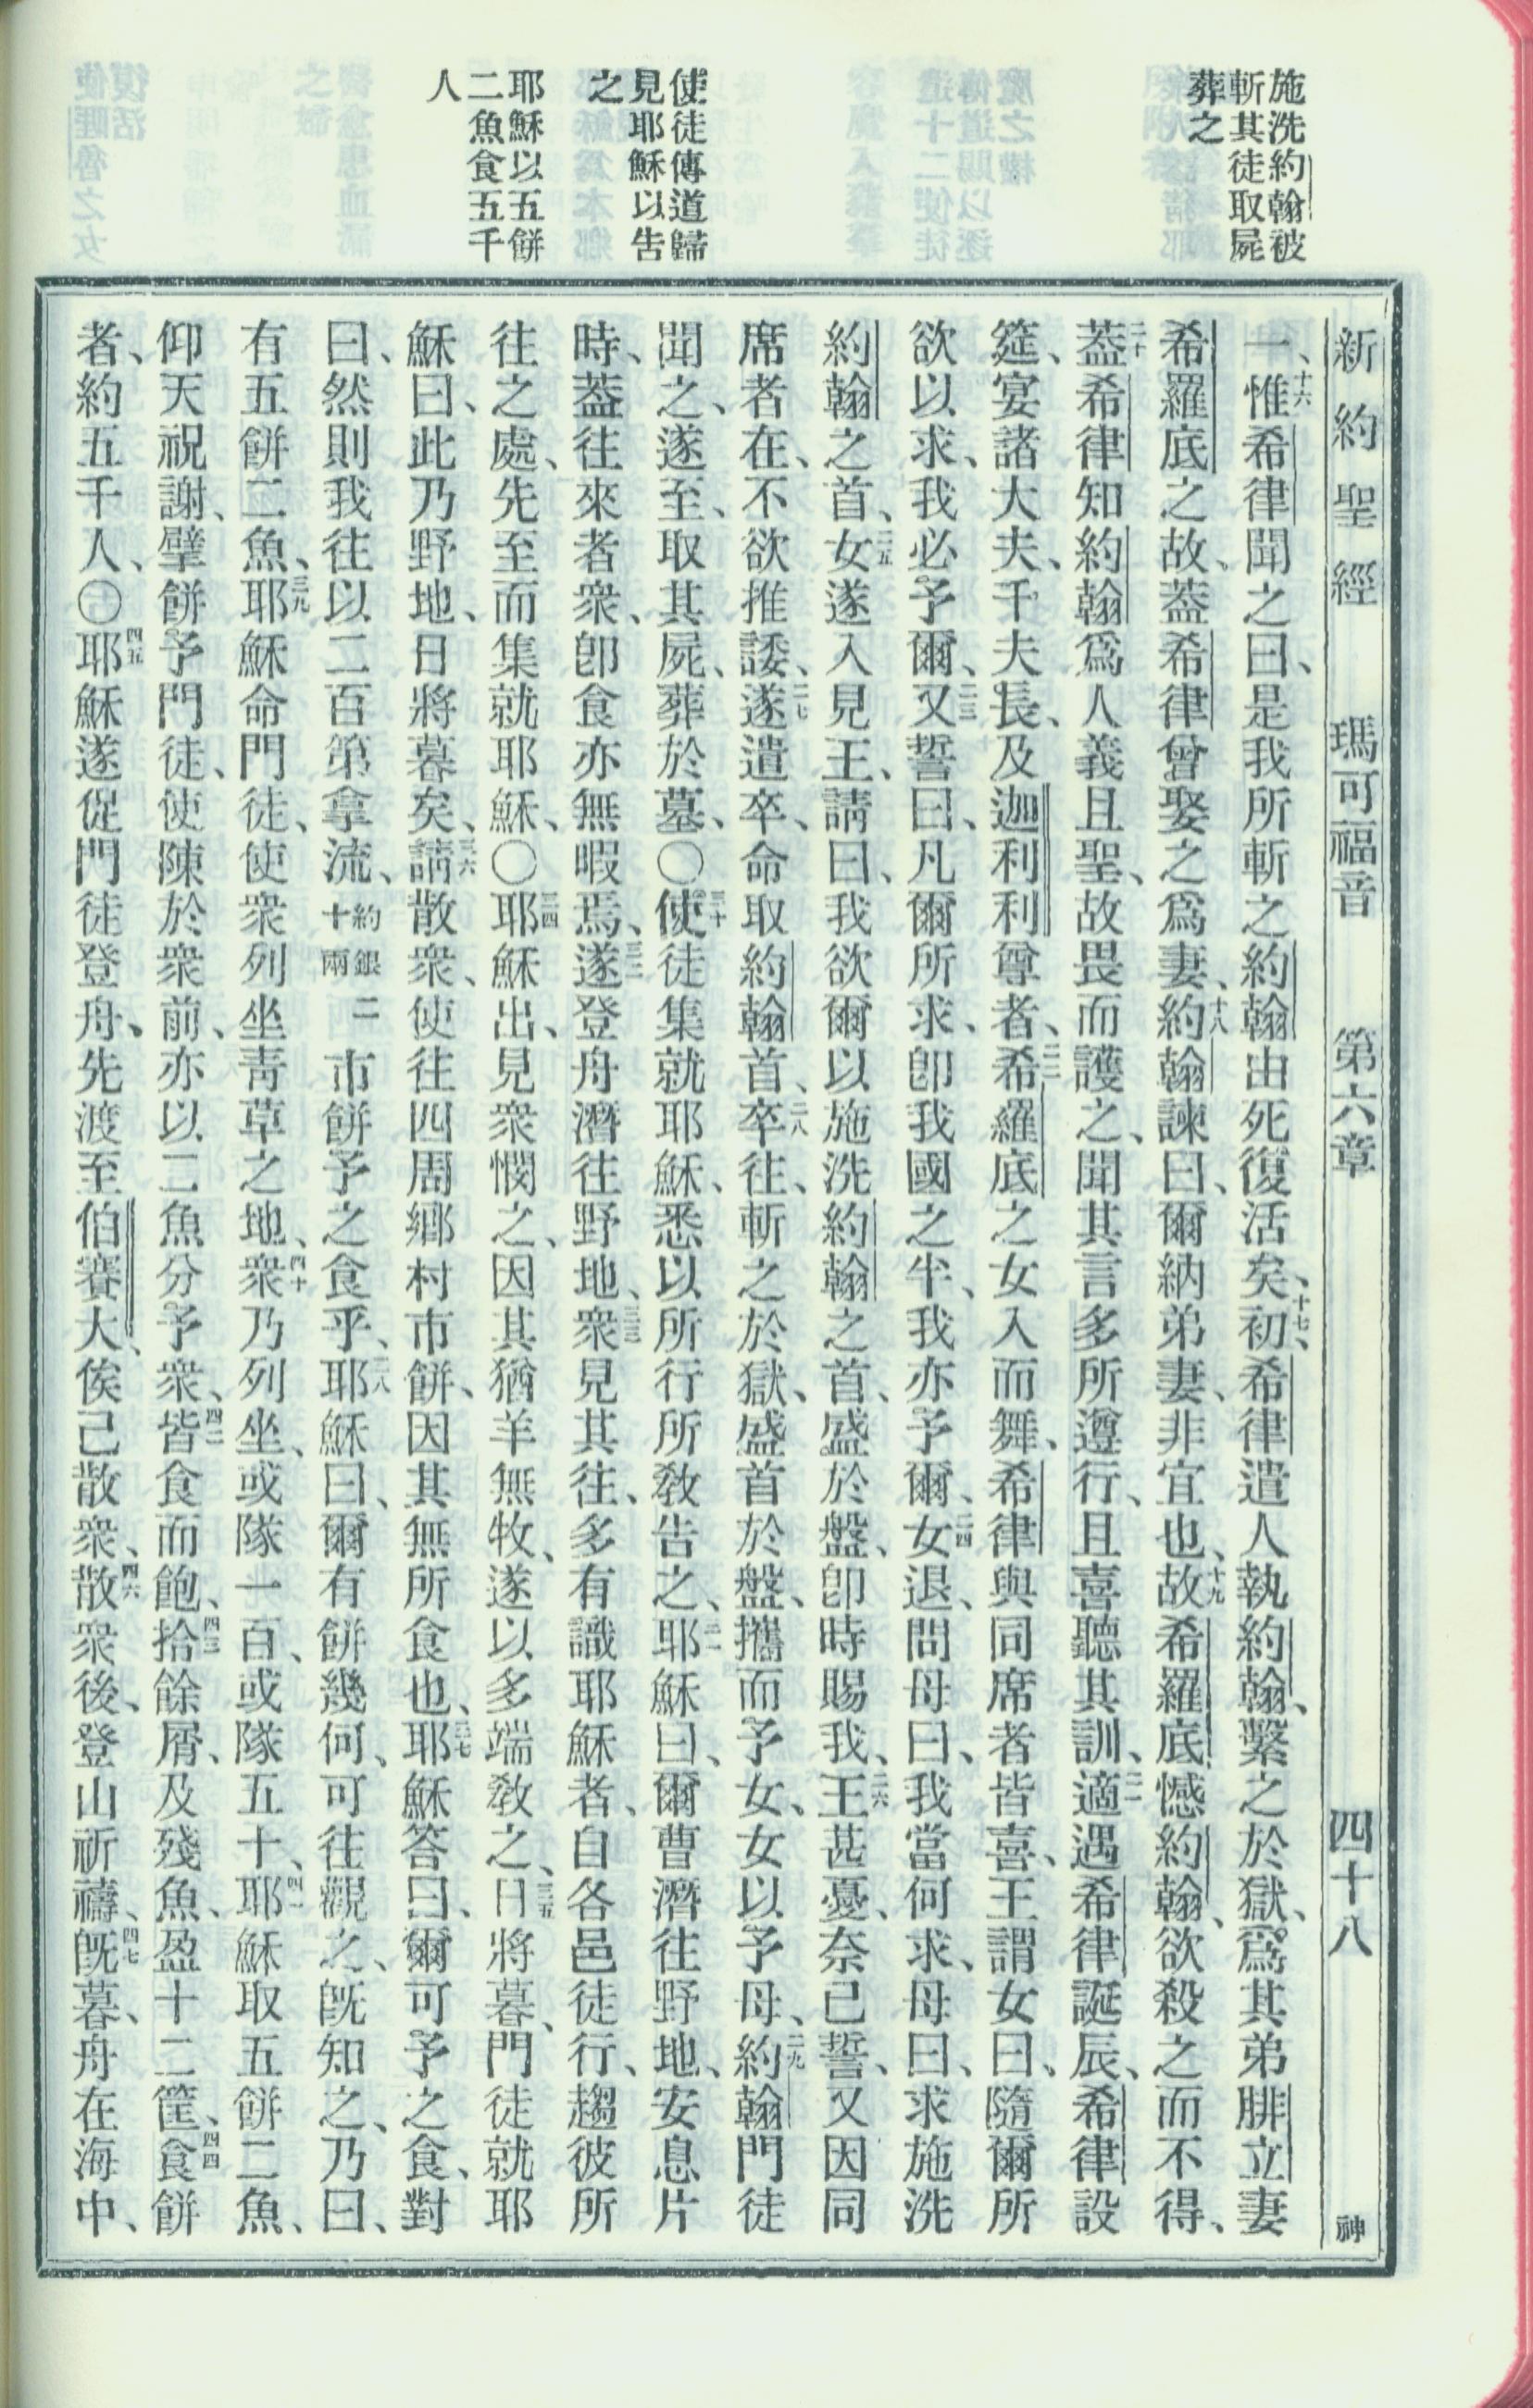 施洗約翰被
斬其徒取屍
葬之
使徒傳道歸
見耶穌以告
之
耶穌以五餅
二魚食五千
人
新約聖經 瑪可福音 第六章 四十八 神
一、十六惟希律聞之曰、是我所斬之約翰由死復活矣、十七初、希律遣人執約翰、繫之於獄、爲其弟腓立妻
希羅底之故、蓋希律曾娶之爲妻、十八約翰諫曰、爾納弟妻、非宜也、十九故希羅底憾約翰、欲殺之而不得、
二十蓋希律知約翰爲人義且聖、故畏而護之、聞其言多所遵行、且喜聽其訓、二一適遇希律誕辰、希律設
筵、宴諸大夫、千夫長、及迦利利尊者、二二希羅底之女入而舞、希律與同席者皆喜、王謂女曰、隨爾所
欲以求、我必予爾、二三又誓曰、凡爾所求、卽我國之半、我亦予爾、二四女退、問母曰、我當何求、母曰、求施洗
約翰之首、二五女遂入見王、請曰、我欲爾以施洗約翰之首、盛於盤、卽時賜我、二六王甚憂、奈已誓、又因同
席者在、不欲推諉、二七遂遣卒、命取約翰首、二八卒往、斬之於獄、盛首於盤、攜而予女、女以予母、二九約翰門徒
聞之、遂至、取其屍、葬於墓、〇三十使徒集就耶穌、悉以所行所敎告之、三一耶穌曰、爾曹潛往野地、安息片
時、蓋往來者衆、卽食亦無暇焉、三二遂登舟潛往野地、三三衆見其往、多有識耶穌者、自各邑徒行、趨彼所
往之處、先至而集就耶穌、〇三四耶穌出、見衆憫之、因其猶羊無牧、遂以多端敎之、三五日將暮、門徒就耶
穌曰、此乃野地、日將暮矣、三六請散衆、使往四周鄕村市餅、因其無所食也、三七耶穌答曰、爾可予之食、對
曰、然則我往以二百第拿流、約銀二十兩 市餅予之食乎、三八耶穌曰、爾有餅幾何、可往觀之、旣知之、乃曰、
有五餅二魚、三九耶穌命門徒、使衆列坐靑草之地、四十衆乃列坐、或隊一百、或隊五十、四一耶穌取五餅二魚、
仰天祝謝、擘餅予門徒、使陳於衆前、亦以二魚分予衆、四二皆食而飽、四三拾餘屑、及殘魚、盈十二筐、四四食餅
者、約五千人、〇四五耶穌遂促門徒登舟、先渡至伯賽大、俟己散衆、四六散衆後、登山祈禱、四七旣暮、舟在海中、